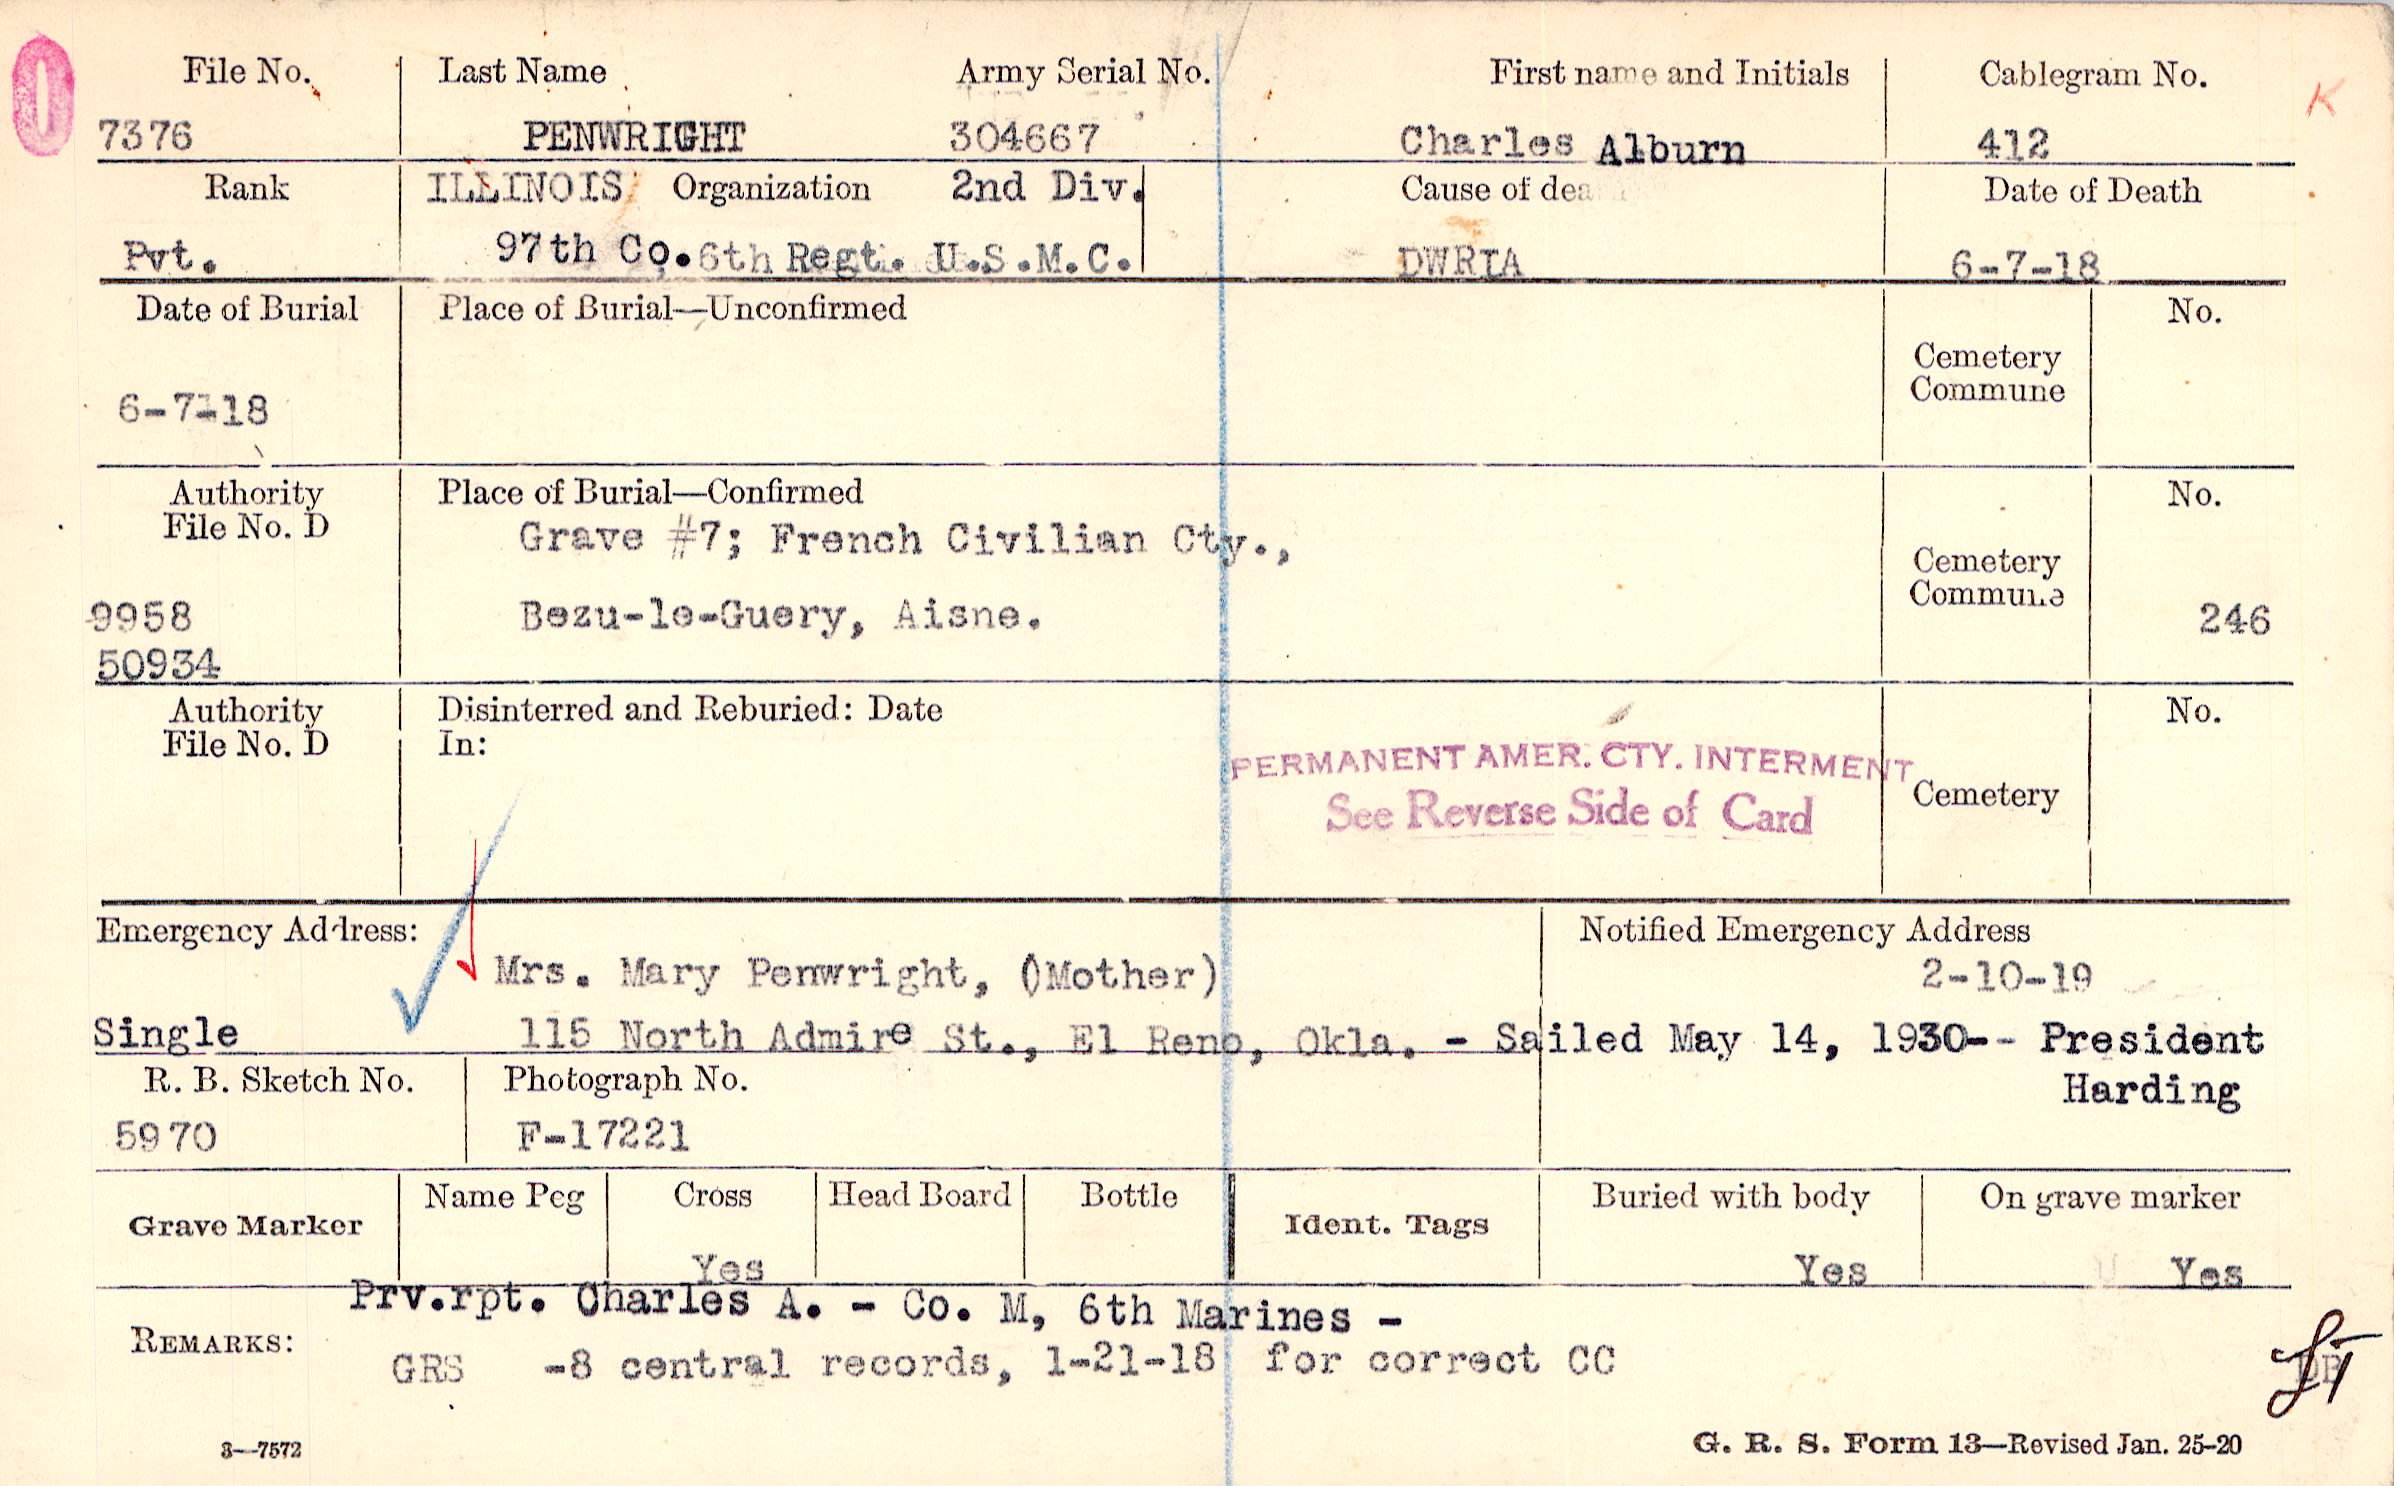 File No. Last Name Army Serial No. First name and Initials Cablegram No.
K
7376 PENWRIGHT 304667 Charles Alburn 412
Rank ILLINOIS Organization 2nd Div. Cause of dea Date of Death
Pvt. 97th Co. 6th Regt. U.S.M.C. DWRIA 6-7-18
Date of Burial Place of Burial—Unconfirmed No.
Cemetery
Commune
6-7-18
Authority Place of Burial—Confirmed No.
File No. D
Grave #7; French Civilian Cty.,
Cemetery
Commune
9958 Bezu-le-Guery, Aisne. 246
50934
Authority Disinterred and Reburied: Date No.
File No. D In:
PERMANENT AMER. CTY. INTERMENT
See Reverse Side of Card
Cemetery
Emergency Address: Notified Emergency Address
Mrs. Mary Penwright, (Mother) 2-10-19
Single 115 North Admire St., El Reno, Okla. - Sailed May 14, 1930-- President
Harding
R. B. Sketch No. Photograph No.
5970 F-17221
Name Peg Cross Head Board Bottle Buried with body On grave marker
Grave Marker Ident. Tags
Yes Yes Yes
Prv.rpt. Charles A. - Co. M, 6th Marines -
REMARKS:
GRS -8 central records, 1-21-18 for correct CC
3—7572 G. R. S. Form 13—Revised Jan. 25-20